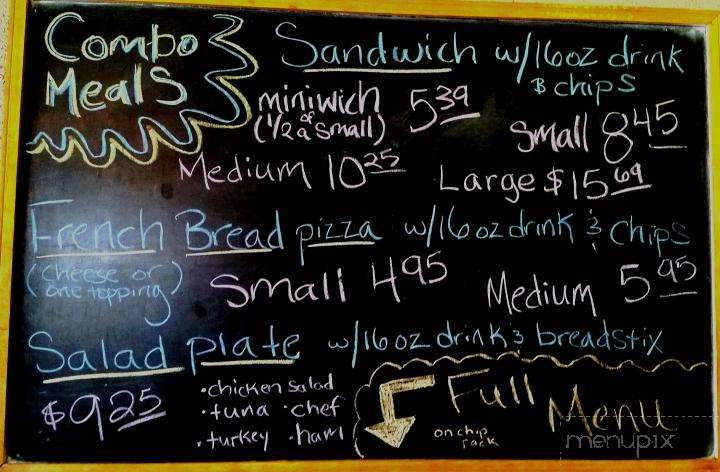 Combo Meals
Sandwich w/16oz drink
& chips
miniwich 5 39
(1/2 of a small)
Small 8 45
Medium 10 25
Large $15 69
French Bread pizza w/16oz drink & chips
(cheese or one topping)
Small 4 95
Medium 5 95
Salad plate w/16oz drink & breadstix
$9 25
• chicken salad
• tuna • chef
• turkey • ham
Full Menu
on chip rack
menupix